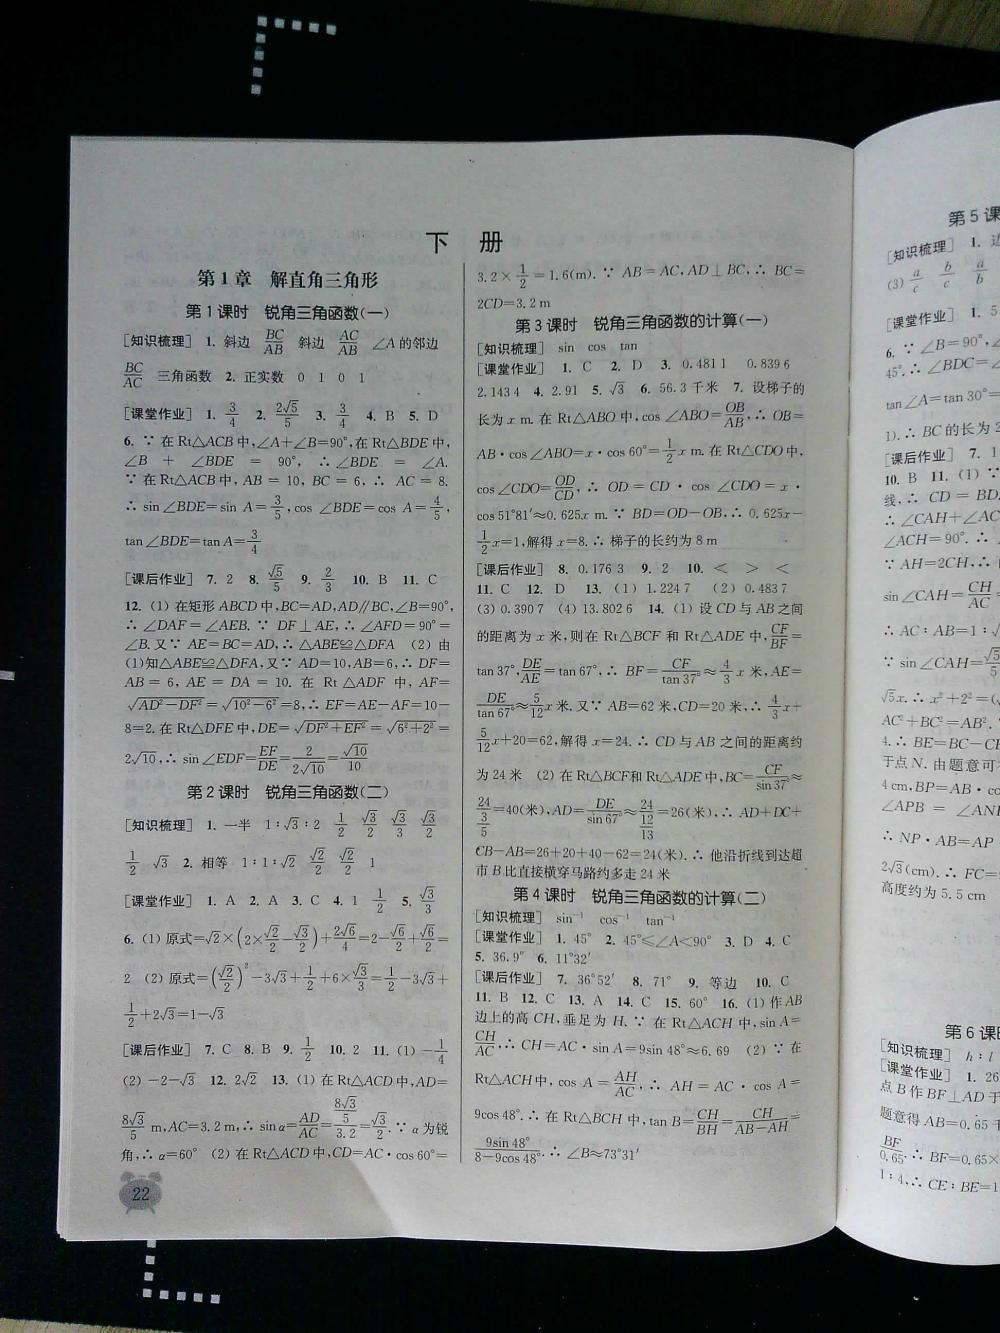 下 册
第1章 解直角三角形
第1课时 锐角三角函数(一)
[知识梳理] 1. 斜边 BC/AB 斜边 AC/AB ∠A的邻边
BC/AC 三角函数 2. 正实数 0 1 0 1
[课堂作业] 1. 3/4 2. 2√5/5 3. 3/4 4. B 5. D
6. ∵ 在Rt△ACB中,∠A+∠B=90°,在Rt△BDE中,
∠B + ∠BDE = 90°, ∴ ∠BDE = ∠A.
∵ 在Rt△ACB中, AB = 10, BC = 6, ∴ AC = 8.
∴ sin∠BDE=sin A=3/5, cos ∠BDE=cos A=4/5,
tan∠BDE=tan A=3/4
[课后作业] 7. 2 8. √5/5 9. 2/3 10. B 11. C
12. (1) 在矩形ABCD中,BC=AD,AD∥BC,∠B=90°,
∴ ∠DAF=∠AEB. ∵ DF⊥AE,∴ ∠AFD=90°=
∠B. 又∵ AE=BC=AD,∴ △ABE≌△DFA (2) 由
(1)知△ABE≌△DFA,又∵ AD=10,AB=6,∴ DF=
AB = 6, AE = DA = 10. 在 Rt △ADF 中, AF=
√(AD²-DF²)=√(10²-6²)=8,∴ EF=AE-AF=10-
8=2. 在Rt△DFE中,DE=√(DF²+EF²)=√(6²+2²)=
2√10,∴ sin∠EDF=EF/DE=2/(2√10)=√10/10
第2课时 锐角三角函数(二)
[知识梳理] 1. 一半 1∶√3∶2 1/2 √3/2 √3/3 √3/2
1/2 √3 2. 相等 1∶1∶√2 √2/2 √2/2 1
[课堂作业] 1. A 2. A 3. C 4. 1 1/2 5. √3/3
6. (1) 原式=√2×(2×√2/2-√3/2)+2√6/4=2-√6/2+√6/2=
2 (2) 原式=(√2/2)²-3√3+1/2+6×√3/3=1/2-3√3+
1/2+2√3=1-√3
[课后作业] 7. C 8. B 9. 1/2 10. 2 11. (1) -1/4
(2) -2-√3 12. 2√2 13. (1) 在Rt△ACD中,AD=
8√3/5 m,AC=3.2 m,∴ sin α=AD/AC=(8√3/5)/3.2=√3/2. ∵ α为锐
角,∴ α=60° (2) 在Rt△ACD中,CD=AC·cos 60°=
22
3.2×1/2=1.6(m). ∵ AB=AC,AD⊥BC,∴ BC=
2CD=3.2 m
第3课时 锐角三角函数的计算(一)
[知识梳理] sin cos tan
[课堂作业] 1. C 2. D 3. 0.481 1 0.839 6
2.143 4 4. 2.91 5. √3 6. 56.3千米 7. 设梯子的
长为x m. 在Rt△ABO中,cos∠ABO=OB/AB,∴ OB=
AB·cos∠ABO=x·cos 60°=1/2 x m. 在Rt△CDO中,
cos∠CDO=OD/CD, ∴ OD = CD · cos ∠CDO = x ·
cos 51°81′≈0.625x m. ∵ BD=OD-OB,∴ 0.625x-
1/2 x=1,解得x=8. ∴ 梯子的长约为8 m
[课后作业] 8. 0.176 3 9. 2 10. < > <
11. C 12. D 13. (1) 1.224 7 (2) 0.483 7
(3) 0.390 7 (4) 13.802 6 14. (1) 设CD与AB之间
的距离为x米,则在Rt△BCF和Rt△ADE中,CF/BF=
tan 37°,DE/AE=tan 67°,∴ BF=CF/tan 37°≈4/3 x 米,AE=
DE/tan 67°≈5/12 x米. 又∵ AB=62米,CD=20米,∴ 4/3 x+
5/12 x+20=62,解得x=24. ∴ CD与AB之间的距离约
为24米 (2) 在Rt△BCF和Rt△ADE中,BC=CF/sin 37°≈
24/(3/5)=40(米),AD=DE/sin 67°≈24/(12/13)=26(米),∴ AD+DC+
CB-AB=26+20+40-62=24(米). ∴ 他沿折线到达超
市B比直接横穿马路约多走24米
第4课时 锐角三角函数的计算(二)
[知识梳理] sin⁻¹ cos⁻¹ tan⁻¹
[课堂作业] 1. 45° 2. 45°≤∠A<90° 3. D 4. C
5. 36.9° 6. 11°32′
[课后作业] 7. 36°52′ 8. 71° 9. 等边 10. C
11. B 12. C 13. A 14. C 15. 60° 16. (1) 作AB
边上的高CH,垂足为H. ∵ 在Rt△ACH中,sin A=
CH/AC,∴ CH=AC·sin A=9sin 48°≈6.69 (2) ∵ 在
Rt△ACH中, cos A=AH/AC, ∴ AH = AC · cos A =
9cos 48°. ∴ 在Rt△BCH中, tan B=CH/BH=CH/(AB-AH)=
9sin 48°/(8-9cos 48°). ∴ ∠B≈73°31′
第5课
[知识梳理] 1.
(3) a/c b/c a/b
[课堂作业] 1. 5
6. ∵ ∠B=90°,∠
45°. ∴ ∠BDC=
tan∠A=tan 30°=
1). ∴ BC的长为2
[课后作业] 7. 1
10. B 11. (1) ∵
线,∴ CD = BD.
∴ ∠CAH+∠AC
∠ACH=90°. ∴
∵ AH=2CH,∴
sin∠CAH=CH/AC
∴ AC∶AB=1∶√
∵ sin∠CAH=√5/5
√5x. ∴ x²+2²=(
AC²+BC²=AB².
4. ∴ BE=BC-C
于点N. 由题意可
4 cm,BP=AB·co
∠APB = ∠AN
∴ NP·AB=AP
2√3(cm). ∴ FC=
高度约为5.5 cm
第6课时
[知识梳理] h∶l
[课堂作业] 1. 26
点B作BF⊥AD于
题意得AB=0.65千
BF/0.65. ∴ BF=0.65×
1∶4,∴ CE∶BE=1